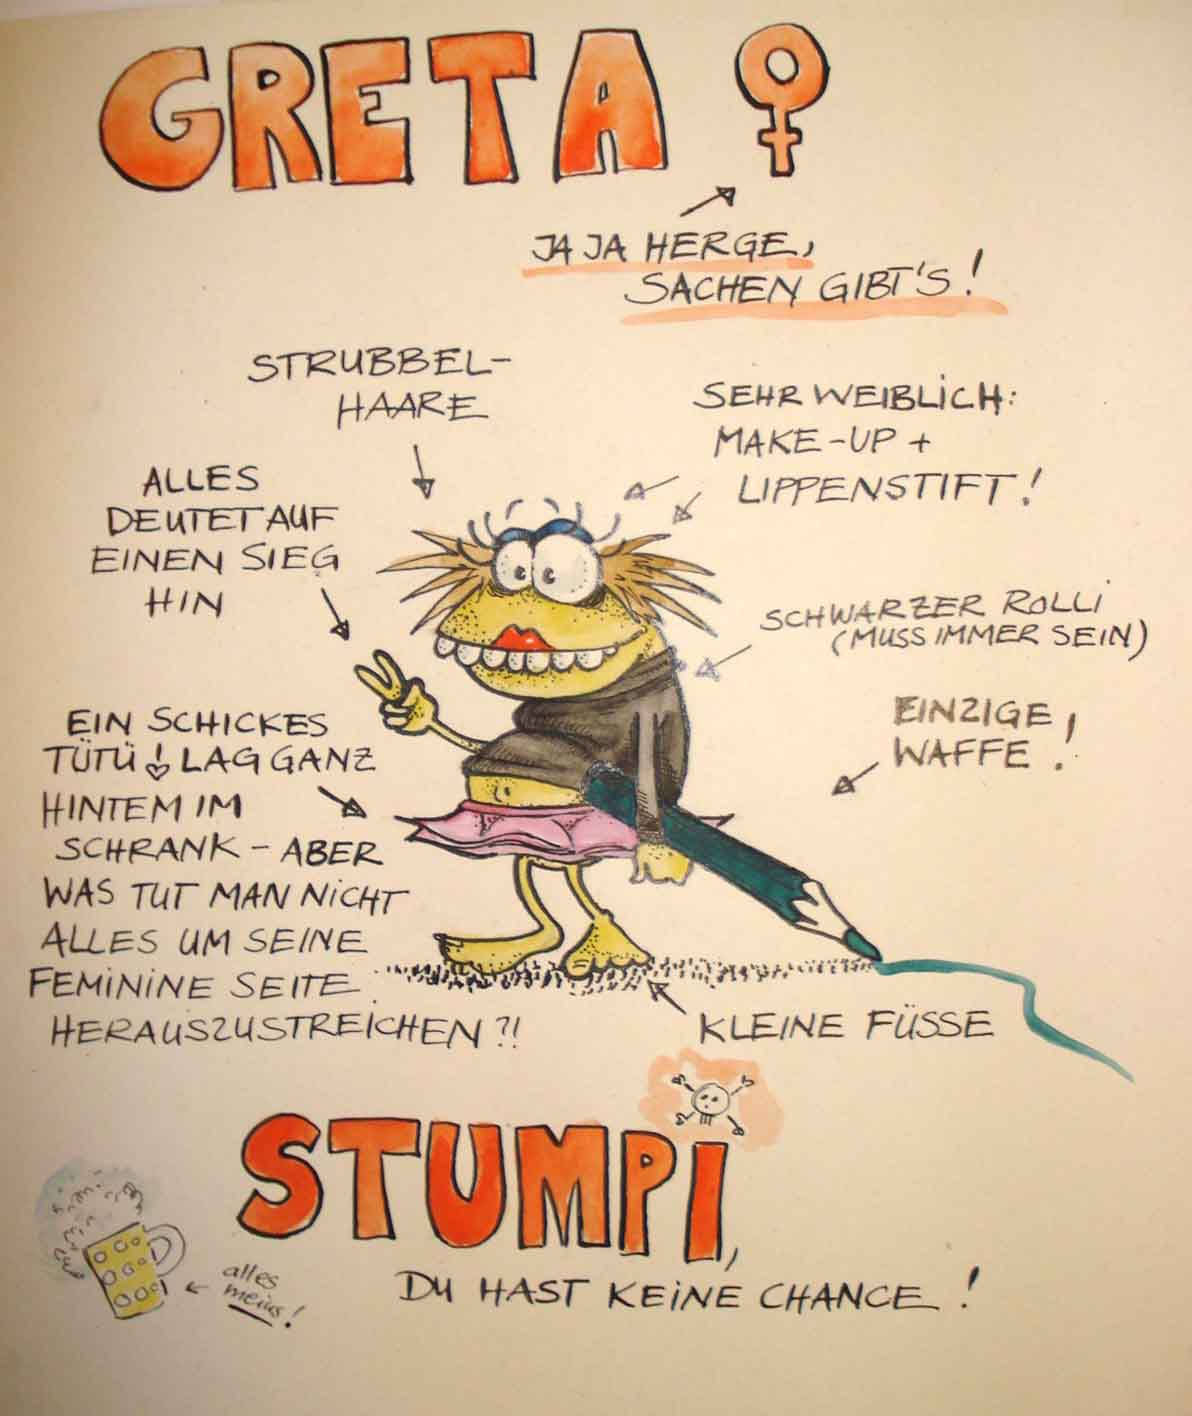 GRETA ♀
JA JA HERGE,
SACHEN GIBT'S!
STRUBBEL-
HAARE
SEHR WEIBLICH:
MAKE-UP +
LIPPENSTIFT!
ALLES
DEUTET AUF
EINEN SIEG
HIN
SCHWARZER ROLLI
(MUSS IMMER SEIN)
EINZIGE
WAFFE!
EIN SCHICKES
TÜTÜ! LAG GANZ
HINTEM IM
SCHRANK - ABER
WAS TUT MAN NICHT
ALLES UM SEINE
FEMININE SEITE
HERAUSZUSTREICHEN?!
KLEINE FÜSSE
STUMPI,
DU HAST KEINE CHANCE!
alles
meins!